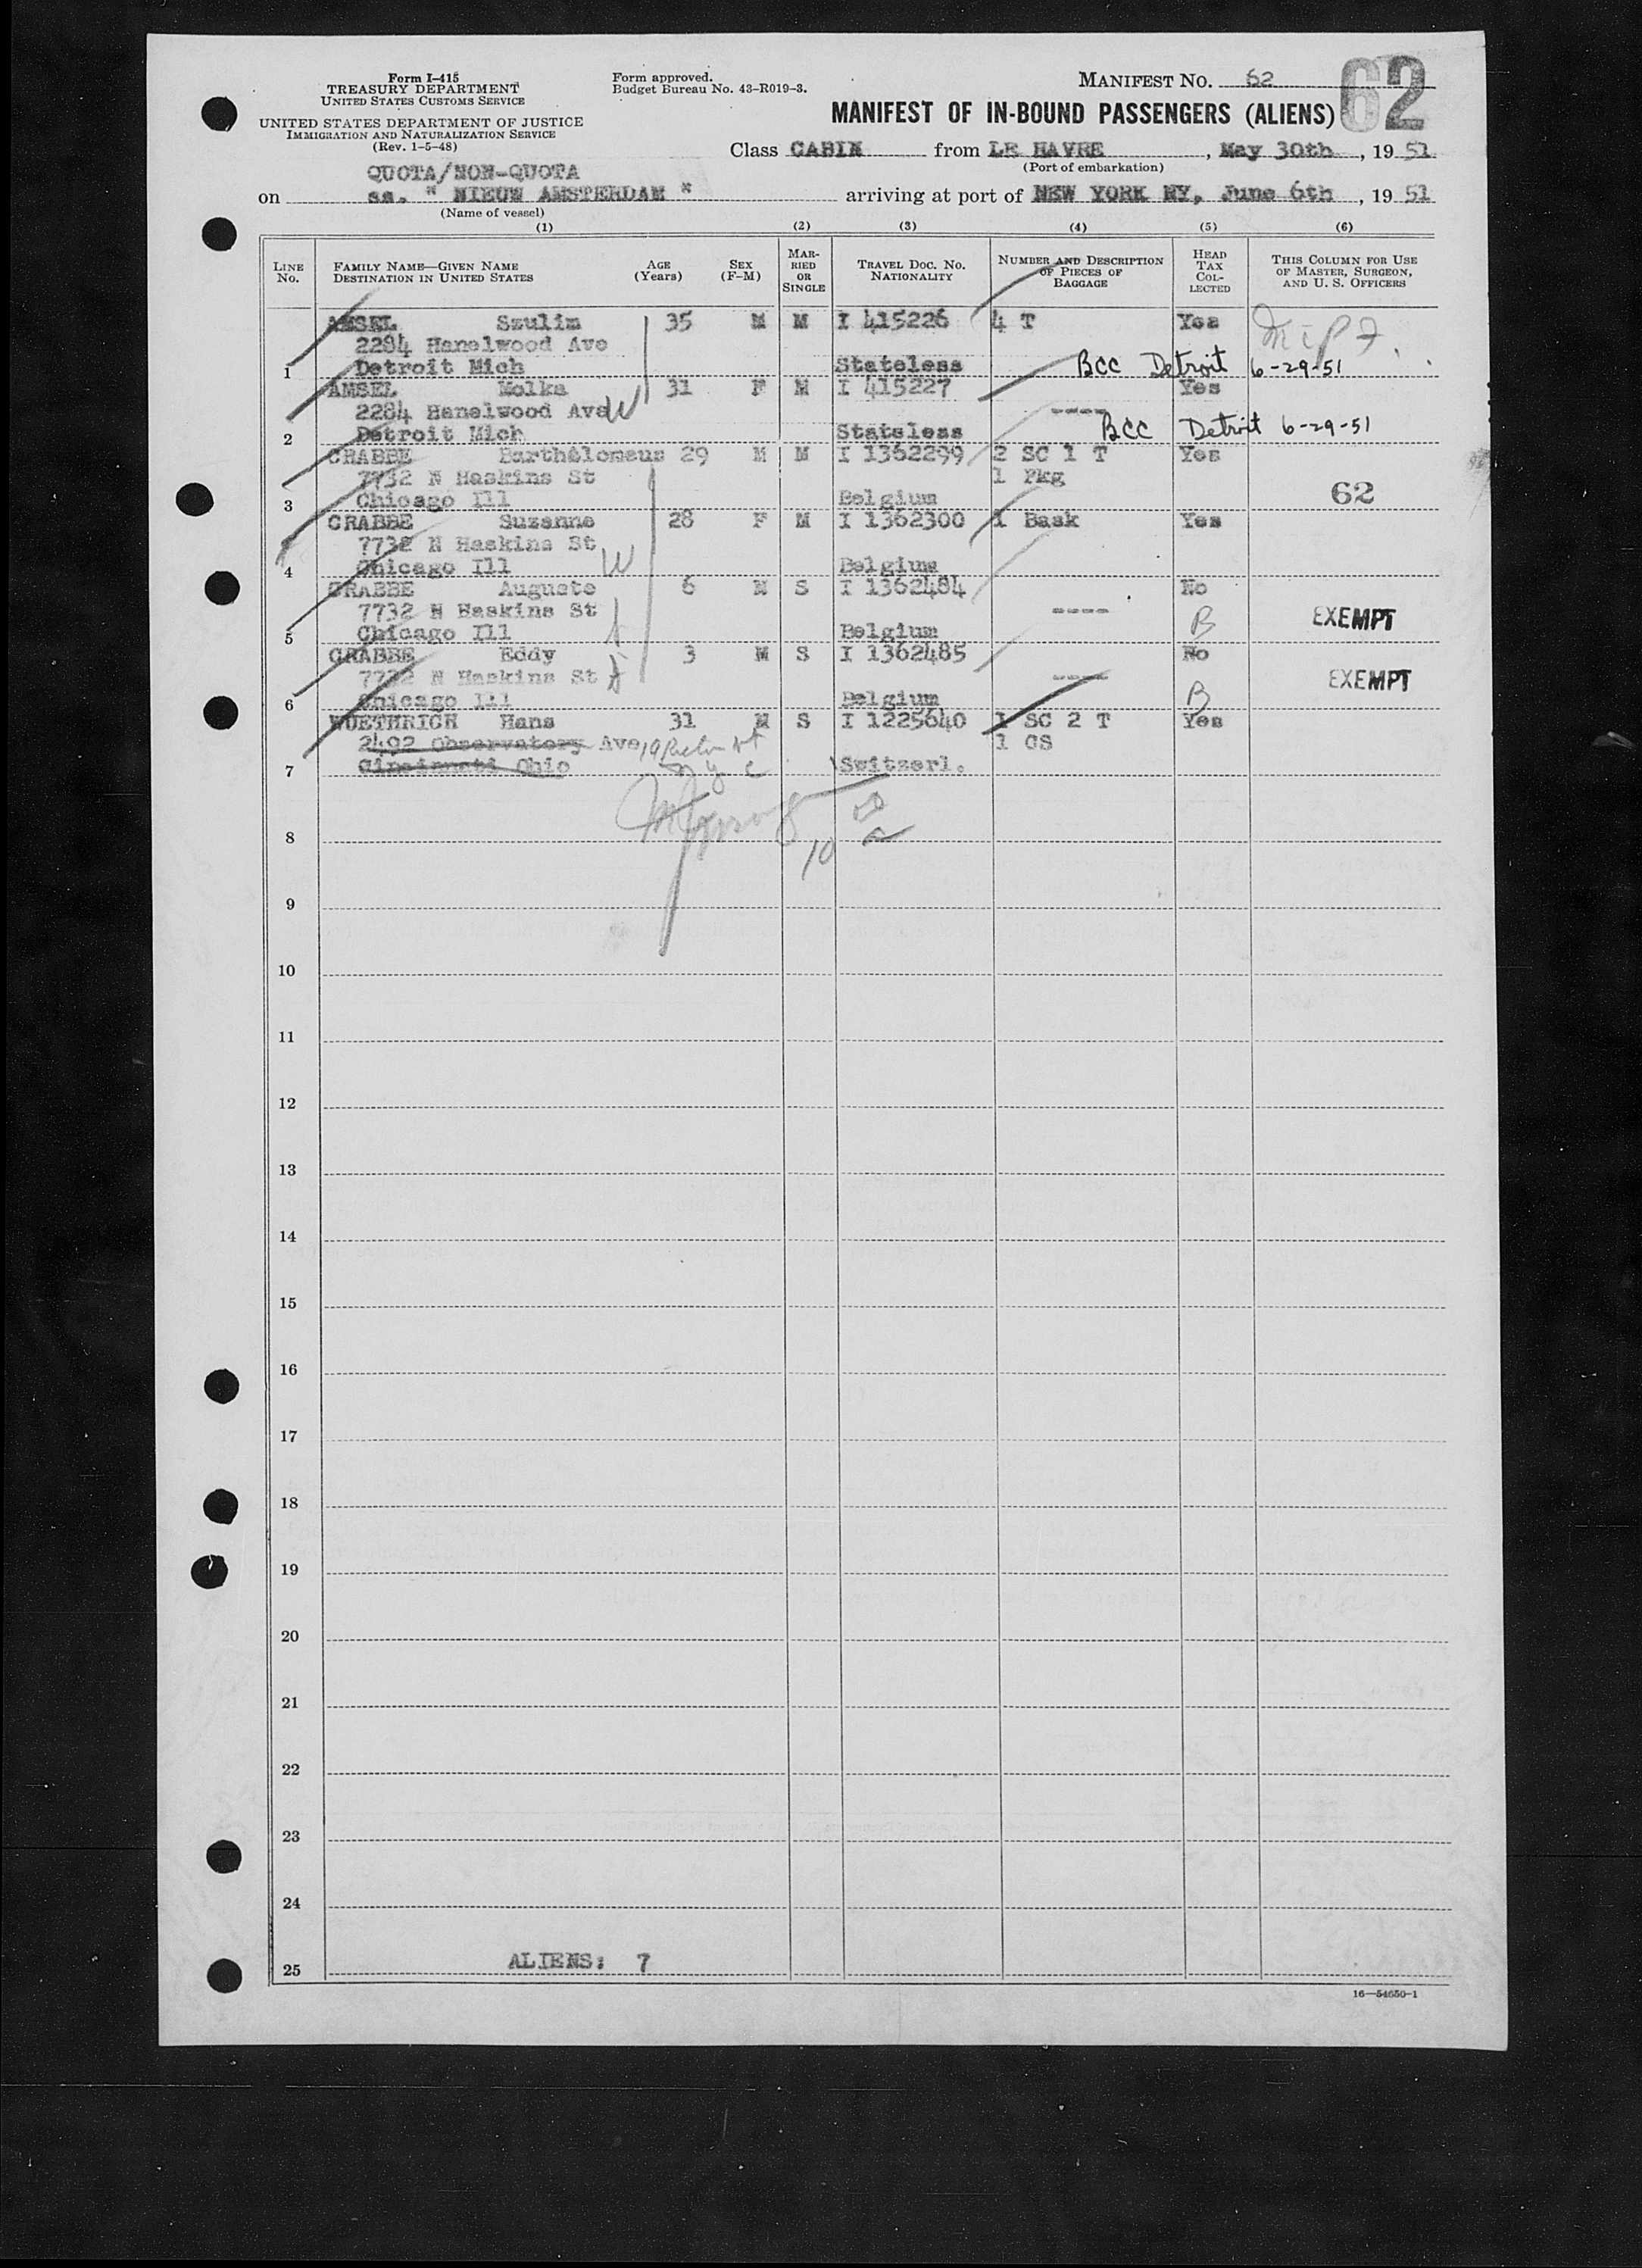 Form I-415
TREASURY DEPARTMENT
UNITED STATES CUSTOMS SERVICE
UNITED STATES DEPARTMENT OF JUSTICE
IMMIGRATION AND NATURALIZATION SERVICE
(Rev. 1-5-48)
Form approved.
Budget Bureau No. 43-R019-3.
MANIFEST NO. 62
62
MANIFEST OF IN-BOUND PASSENGERS (ALIENS)
Class CABIN from LE HAVRE, May 30th, 1951
(Port of embarkation)
QUOTA/NON-QUOTA
on ss. " NIEUW AMSTERDAM " arriving at port of NEW YORK NY, June 6th, 1951
(Name of vessel)
(1) (2) (3) (4) (5) (6)
LINE No. FAMILY NAME—GIVEN NAME DESTINATION IN UNITED STATES AGE (Years) SEX (F-M) MARRIED OR SINGLE TRAVEL DOC. NO. NATIONALITY NUMBER AND DESCRIPTION OF PIECES OF BAGGAGE HEAD TAX COLLECTED THIS COLUMN FOR USE OF MASTER, SURGEON, AND U. S. OFFICERS
AMSEL Szulim 35 M M I 415226 4 T Yes
2284 Hanelwood Ave
1 Detroit Mich Stateless BCC Detroit 6-29-51
AMSEL Molka 31 F M I 415227 Yes
2284 Hanelwood Ave W ----
2 Detroit Mich Stateless BCC Detroit 6-29-51
CRABBE Barthélomeus 29 M M I 1362299 2 SC 1 T Yes
7732 N Haskins St 1 Pkg
3 Chicago Ill Belgium 62
CRABBE Suzanne 28 F M I 1362300 1 Bask Yes
7732 N Haskins St
4 Chicago Ill W Belgium
CRABBE Auguste 6 M S I 1362484 No
7732 N Haskins St ---- B EXEMPT
5 Chicago Ill Belgium
CRABBE Eddy 3 M S I 1362485 No
7732 N Haskins St ---- EXEMPT
6 Chicago Ill Belgium B
WUETHRICH Hans 31 M S I 1225640 1 SC 2 T Yes
2492 Observatory Ave 1 CS
7 Cincinnati Ohio N Y C Switzerl.
8
10
9
10
11
12
13
14
15
16
17
18
19
20
21
22
23
24
25 ALIENS: 7
16—54650-1